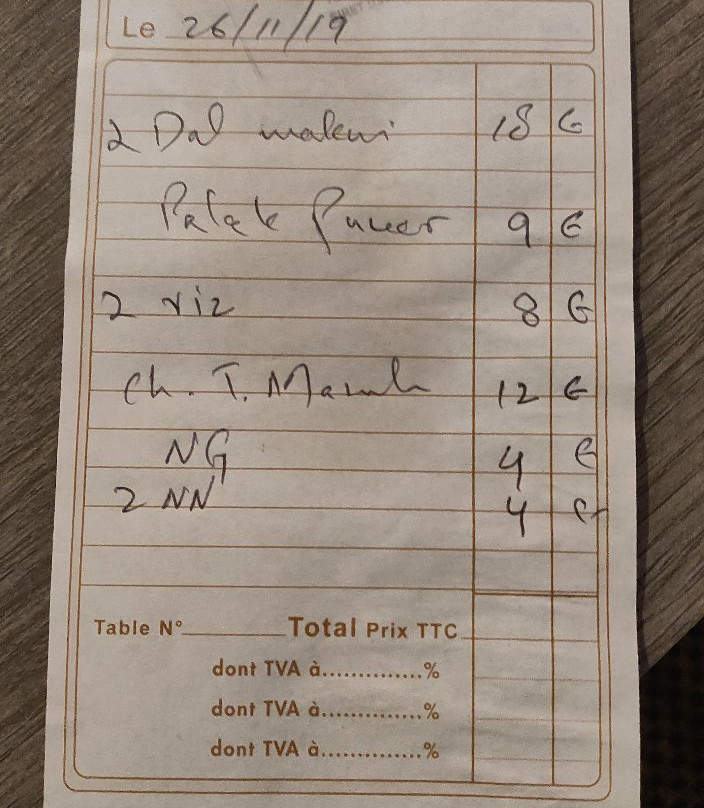 Le 26/11/19
2 Dal makni 18 €
Palak Puneer 9 €
2 riz 8 €
Ch. T. Masala 12 €
NG 4 €
2 NN 4 €
Table N° Total Prix TTC
dont TVA à..............%
dont TVA à..............%
dont TVA à..............%